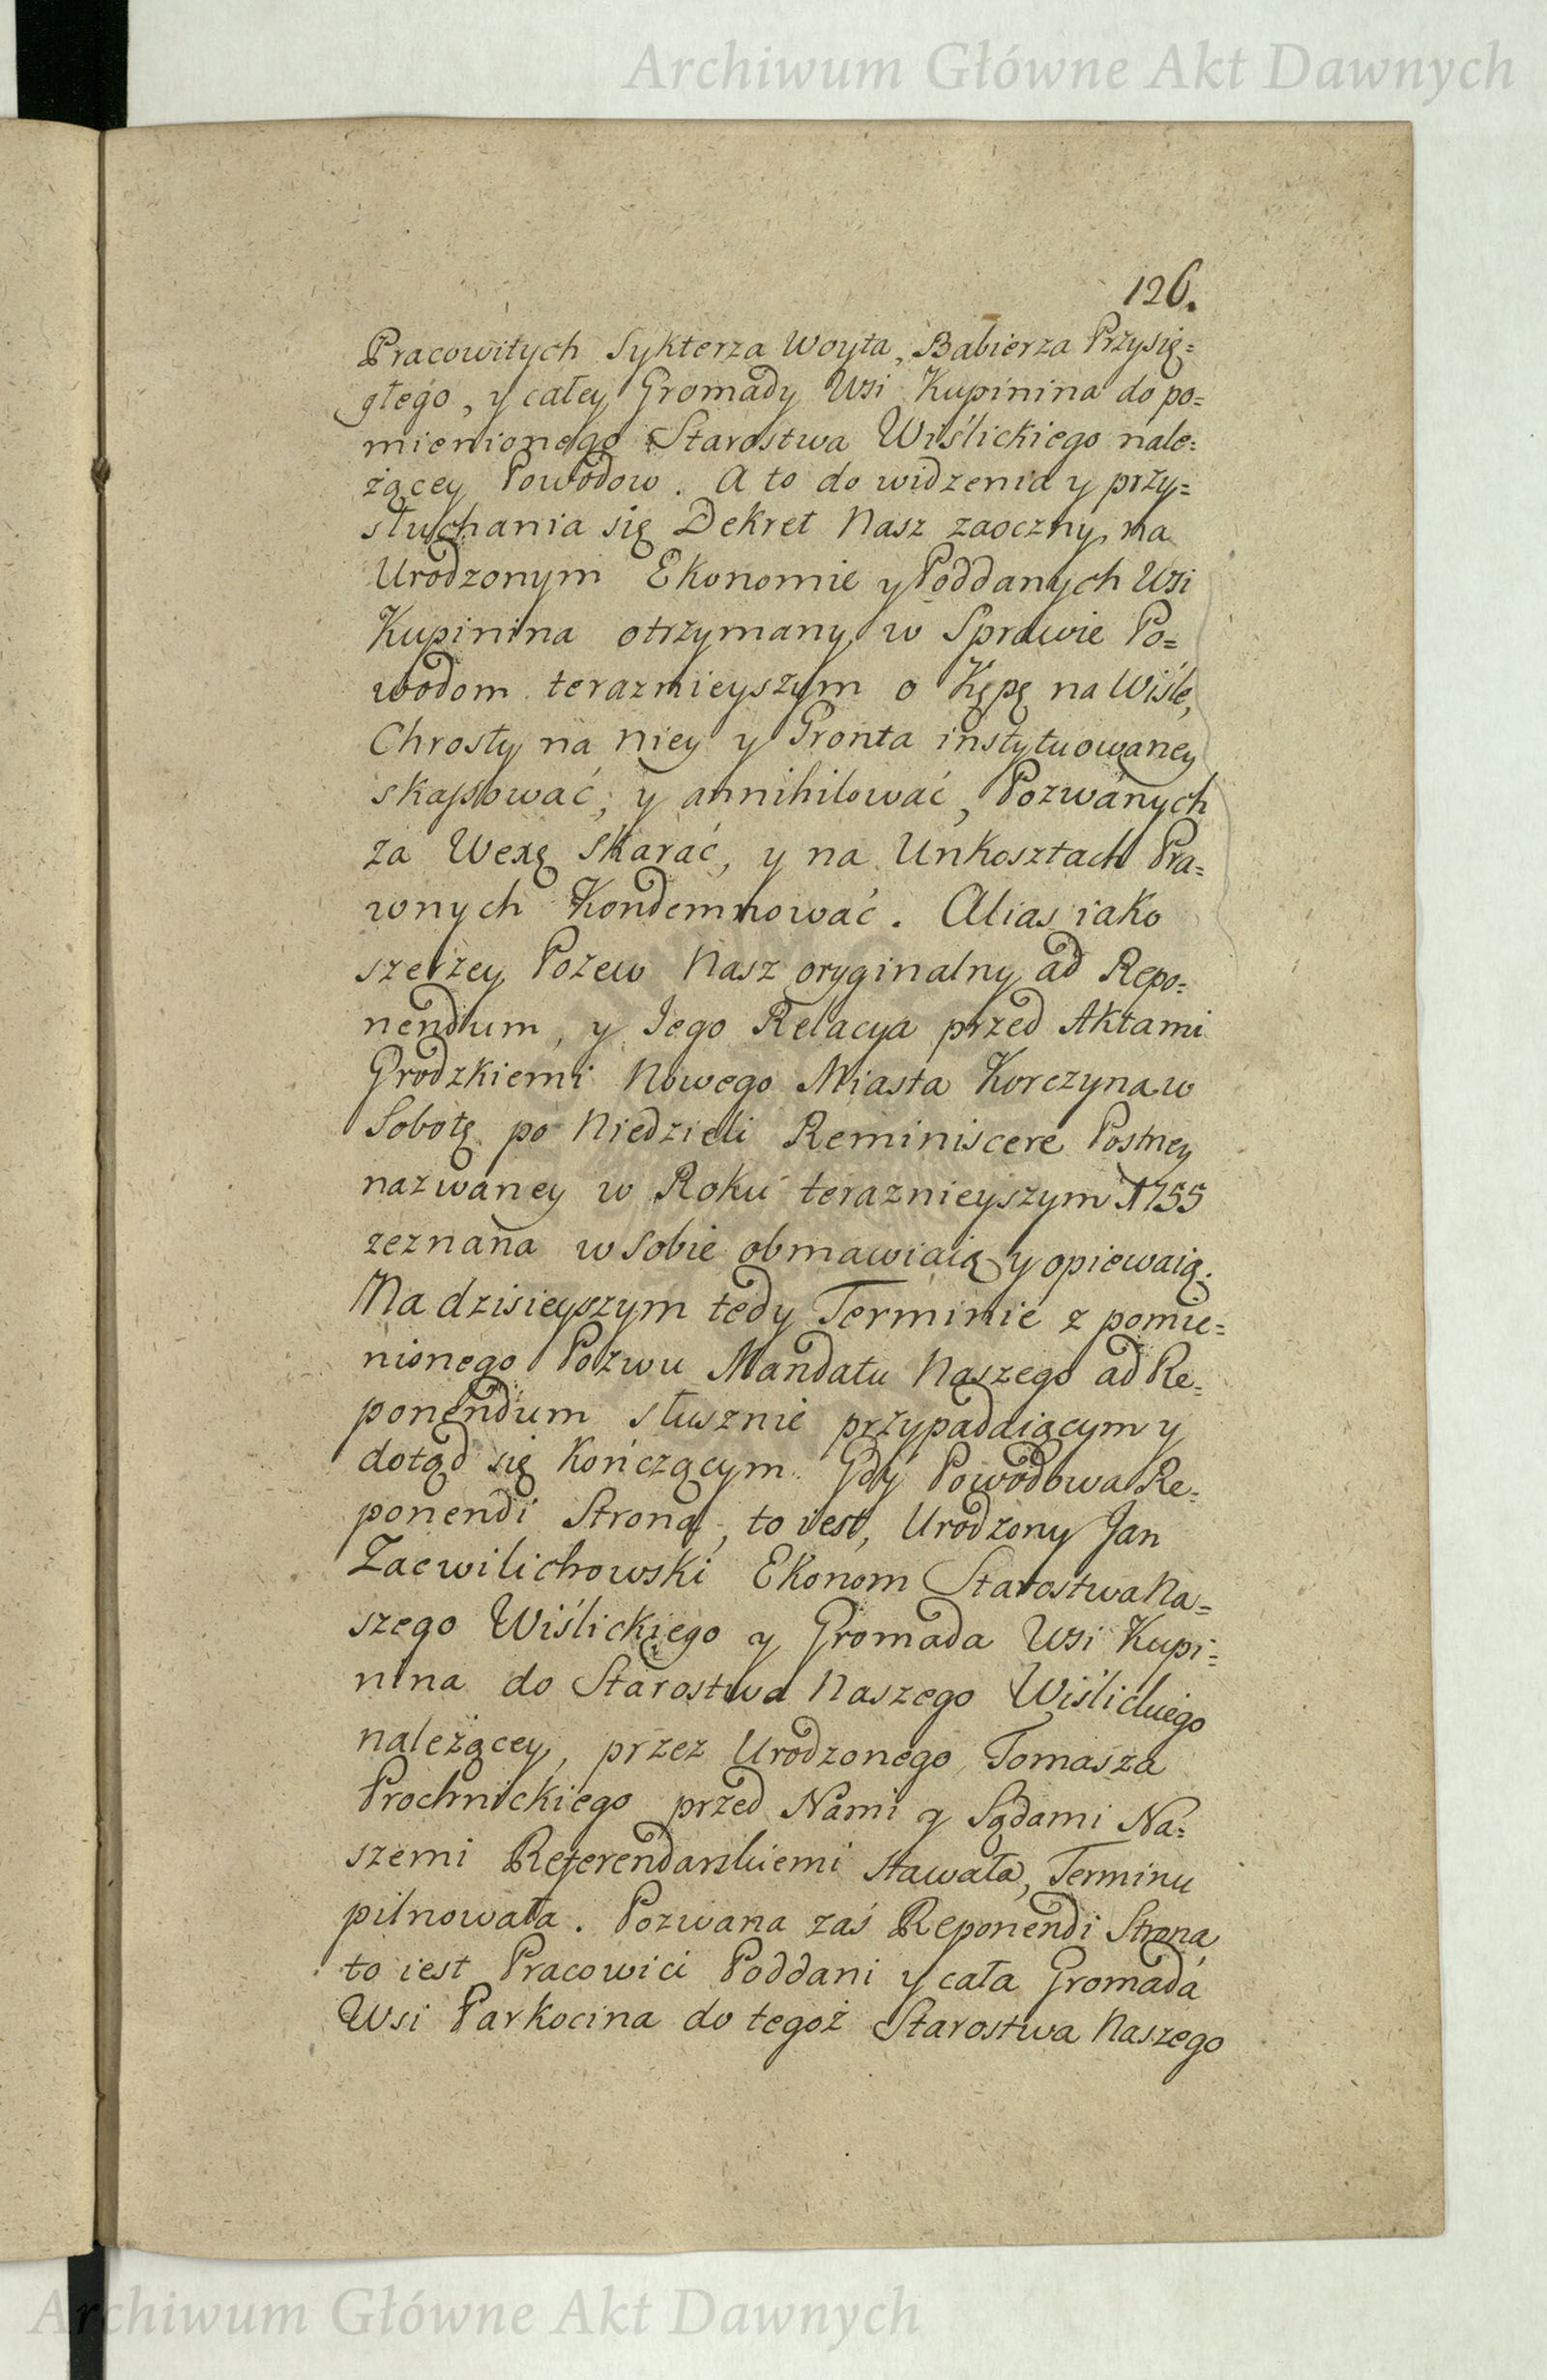 Archiwum Główne Akt Dawnych
126.
Pracowitych Sykterza Woyta, Babierza Przysię=
głego, y całey Gromady Wsi Kupinina do po=
mienionego Starostwa Wiślickiego nale=
żącey Powodow. A to do widzenia y przy=
słuchania się Dekret Nasz zaoczny, na
Urodzonym Ekonomie y Poddanych Wsi
Kupinina otrzymany w Sprawie Po=
wodom teraznieyszym o Kępę na Wiśle,
Chrosty na niey y Gronta instytuowaney
skassować, y annihilować, Pozwanych
za Wexę skarać, y na Unkosztach Pra=
wnych Kondemnować. Alias iako
szerzey Pozew Nasz oryginalny ad Repo=
nendum, y Iego Relacya przed Aktami
Grodzkiemi Nowego Miasta Korczyna w
Sobotę po Niedzieli Reminiscere Postney
nazwaney w Roku teraznieyszym 1755
zeznana w sobie obmawiaią y opiewaią.
Na dzisieyszym tedy Terminie z pomie=
nionego Pozwu Mandatu Naszego ad Re=
ponendum słusznie przypadaiącym y
dotąd się kończącym. Gdy Powodowa Re=
ponendi Strona, to iest, Urodzony Jan
Zacwilichowski Ekonom Starostwa Na=
szego Wiślickiego y Gromada Wsi Kupi=
nina do Starostwa Naszego Wiślickiego
należącey, przez Urodzonego Tomasza
Prochnickiego przed Nami y Sądami Na=
szemi Referendarskiemi stawała, Terminu
pilnowała. Pozwana zaś Reponendi Strona
to iest Pracowici Poddani y cała Gromada
Wsi Parkocina do tegoż Starostwa Naszego
Archiwum Główne Akt Dawnych